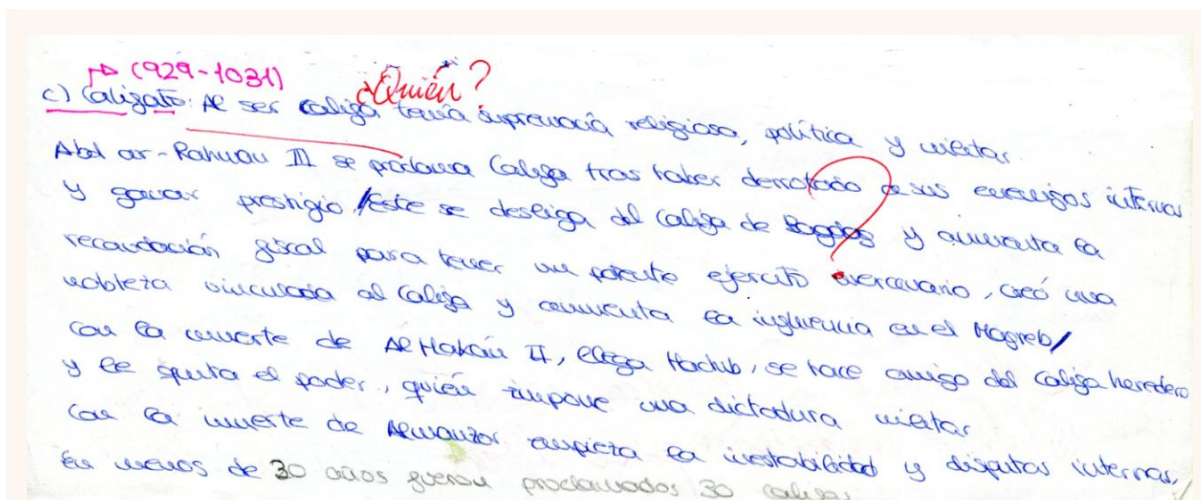 (929-1031)
¿Quién?
c) Califato: Al ser califa tenía supremacía religiosa, política y militar.
Abd ar-Rahman II se proclama Califa tras haber derrotado a sus enemigos internos
y ganar prestigio / este se desliga del califa de Bagdag y aumenta la
recaudación fiscal para tener un potente ejercito mercenario, creó una
nobleza vinculada al Califa y aumenta la influencia en el Magreb/
Con la muerte de Al Hakán II, llega Hachub, se hace amigo del Califa heredero
y le quita el poder, quién impone una dictadura militar
Con la muerte de Almanzor empieza la inestabilidad y disputas internas,
En menos de 30 años fueron proclamados 30 califas